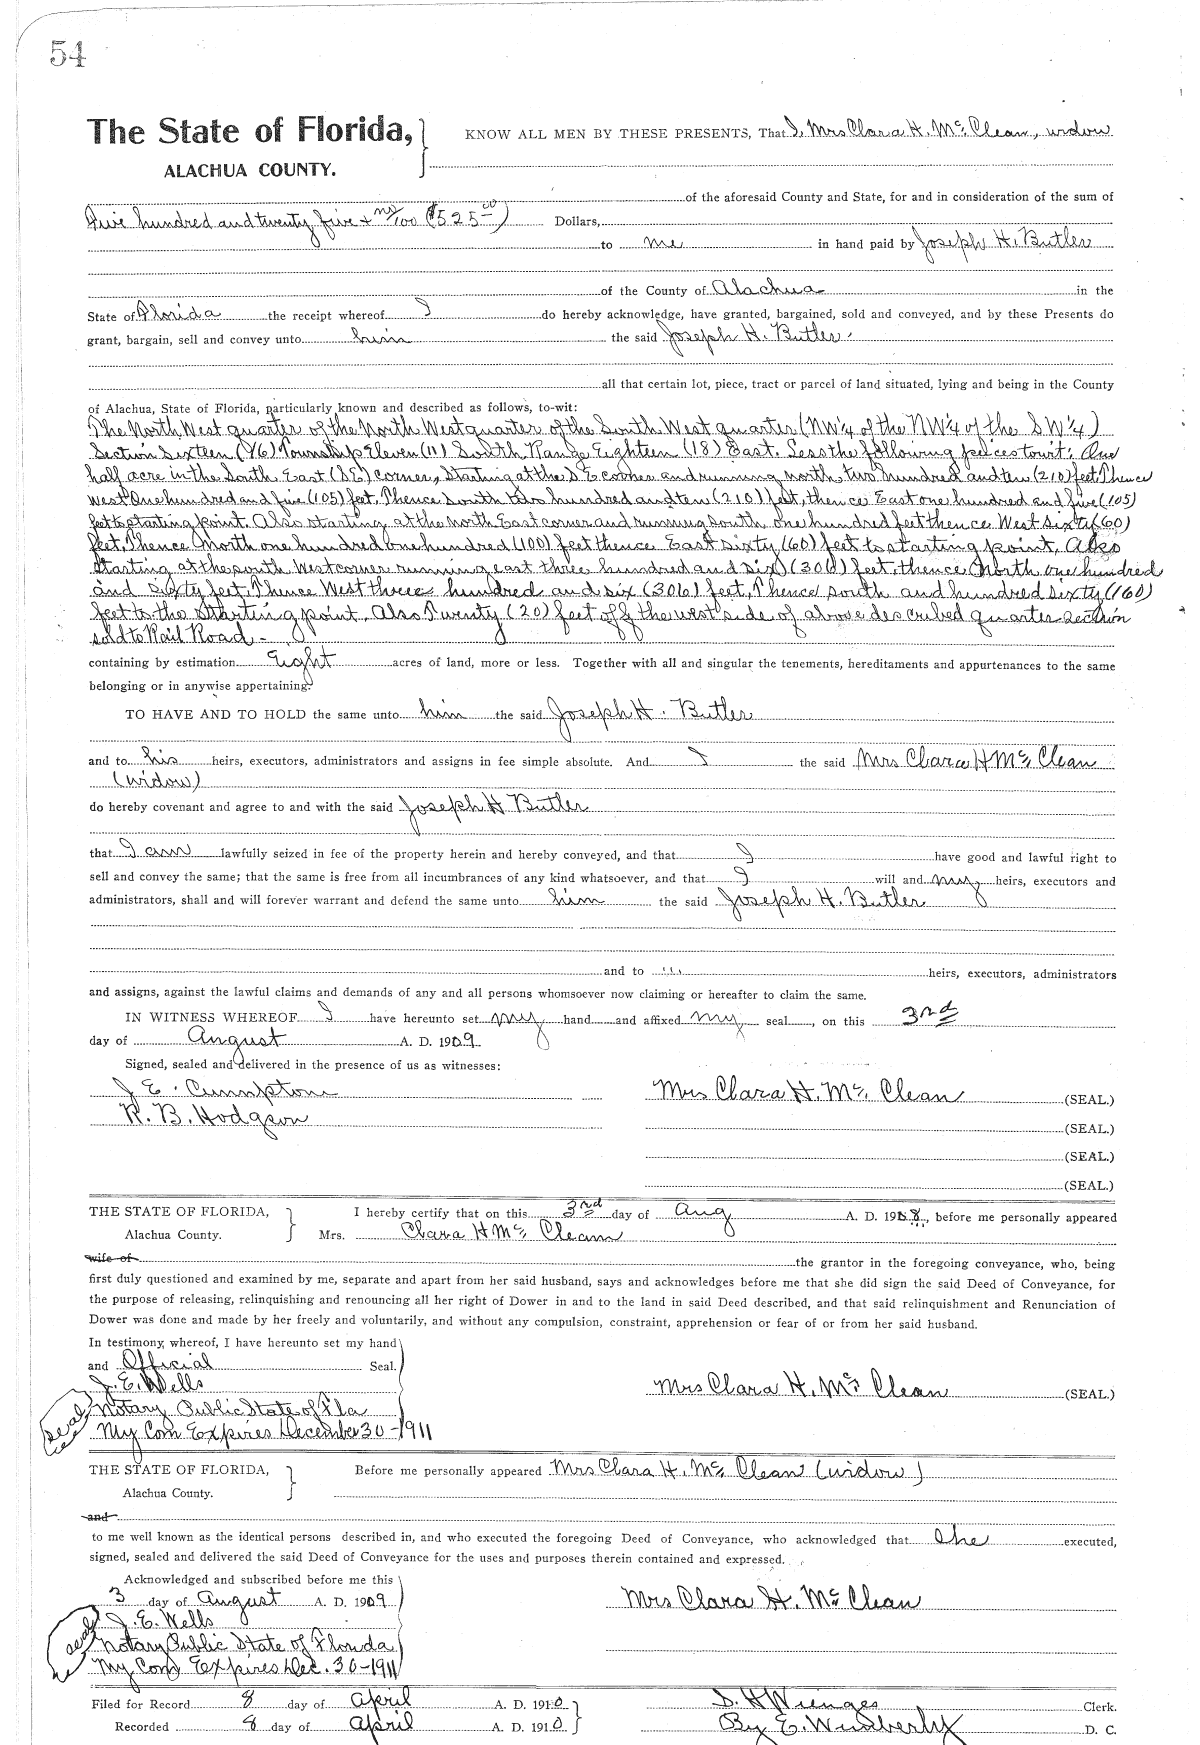 54
The State of Florida, KNOW ALL MEN BY THESE PRESENTS, That I, Mrs Clara H. McClean, widow
ALACHUA COUNTY.
of the aforesaid County and State, for and in consideration of the sum of
Five hundred and twenty five + no/100 ($525.00) Dollars,
to me in hand paid by Joseph H. Butler
of the County of Alachua in the
State of Florida the receipt whereof I do hereby acknowledge, have granted, bargained, sold and conveyed, and by these Presents do
grant, bargain, sell and convey unto him the said Joseph H. Butler
all that certain lot, piece, tract or parcel of land situated, lying and being in the County
of Alachua, State of Florida, particularly known and described as follows, to-wit:
The North West quarter of the North West quarter of the South West quarter (NW¼ of the NW¼ of the SW¼)
Section Sixteen (16) Township Eleven (11) South Range Eighteen (18) East. Less the following peices towit: One
half acre in the South East (SE) corner, Starting at the SE corner and running north two hundred and ten (210) feet, Thence
West One hundred and five (105) feet, Thence South two hundred and ten (210) feet, thence East one hundred and five (105)
feet to starting point. Also starting at the North East corner and running South one hundred feet thence West Sixty (60)
feet, Thence North one hundred one hundred (100) feet thence East Sixty (60) feet to starting point, Also
Starting at the south West corner running east three hundred and six (306) feet, thence North one hundred
and sixty feet, Thence West three hundred and six (306) feet, Thence south and hundred sixty (160)
feet to the Starting point. Also Twenty (20) feet off the west side of above described quarter section
sold to Rail Road -
containing by estimation Eight acres of land, more or less. Together with all and singular the tenements, hereditaments and appurtenances to the same
belonging or in anywise appertaining.
TO HAVE AND TO HOLD the same unto him the said Joseph H. Butler
and to his heirs, executors, administrators and assigns in fee simple absolute. And I the said Mrs Clara H McClean
(widow)
do hereby covenant and agree to and with the said Joseph H Butler
that I am lawfully seized in fee of the property herein and hereby conveyed, and that I have good and lawful right to
sell and convey the same; that the same is free from all incumbrances of any kind whatsoever, and that I will and my heirs, executors and
administrators, shall and will forever warrant and defend the same unto him the said Joseph H. Butler
and to heirs, executors, administrators
and assigns, against the lawful claims and demands of any and all persons whomsoever now claiming or hereafter to claim the same.
IN WITNESS WHEREOF I have hereunto set my hand and affixed my seal, on this 3rd
day of August A. D. 1909
Signed, sealed and delivered in the presence of us as witnesses:
J E. Cumpton Mrs Clara H. McClean (SEAL.)
R. B. Hodgson (SEAL.)
(SEAL.)
(SEAL.)
THE STATE OF FLORIDA, I hereby certify that on this 3rd day of Aug A. D. 190, before me personally appeared
Alachua County. Mrs. Clara H McClean
wife of the grantor in the foregoing conveyance, who, being
first duly questioned and examined by me, separate and apart from her said husband, says and acknowledges before me that she did sign the said Deed of Conveyance, for
the purpose of releasing, relinquishing and renouncing all her right of Dower in and to the land in said Deed described, and that said relinquishment and Renunciation of
Dower was done and made by her freely and voluntarily, and without any compulsion, constraint, apprehension or fear of or from her said husband.
In testimony, whereof, I have hereunto set my hand
and Official Seal.
J. E. Wells Mrs Clara H. McClean (SEAL)
Seal Notary Public State of Fla
My Com Expires December 30-1911
THE STATE OF FLORIDA, Before me personally appeared Mrs Clara H. McClean (widow)
Alachua County.
and
to me well known as the identical persons described in, and who executed the foregoing Deed of Conveyance, who acknowledged that She executed,
signed, sealed and delivered the said Deed of Conveyance for the uses and purposes therein contained and expressed.
Acknowledged and subscribed before me this
3 day of August A. D. 1909 Mrs Clara H. McClean
J. E. Wells
Seal Notary Public State of Florida
My Com Expires Dec. 30-1911
Filed for Record 8 day of April A. D. 1910 D. H Wienges Clerk.
Recorded 8 day of April A. D. 1910 By E. Wimberly D. C.